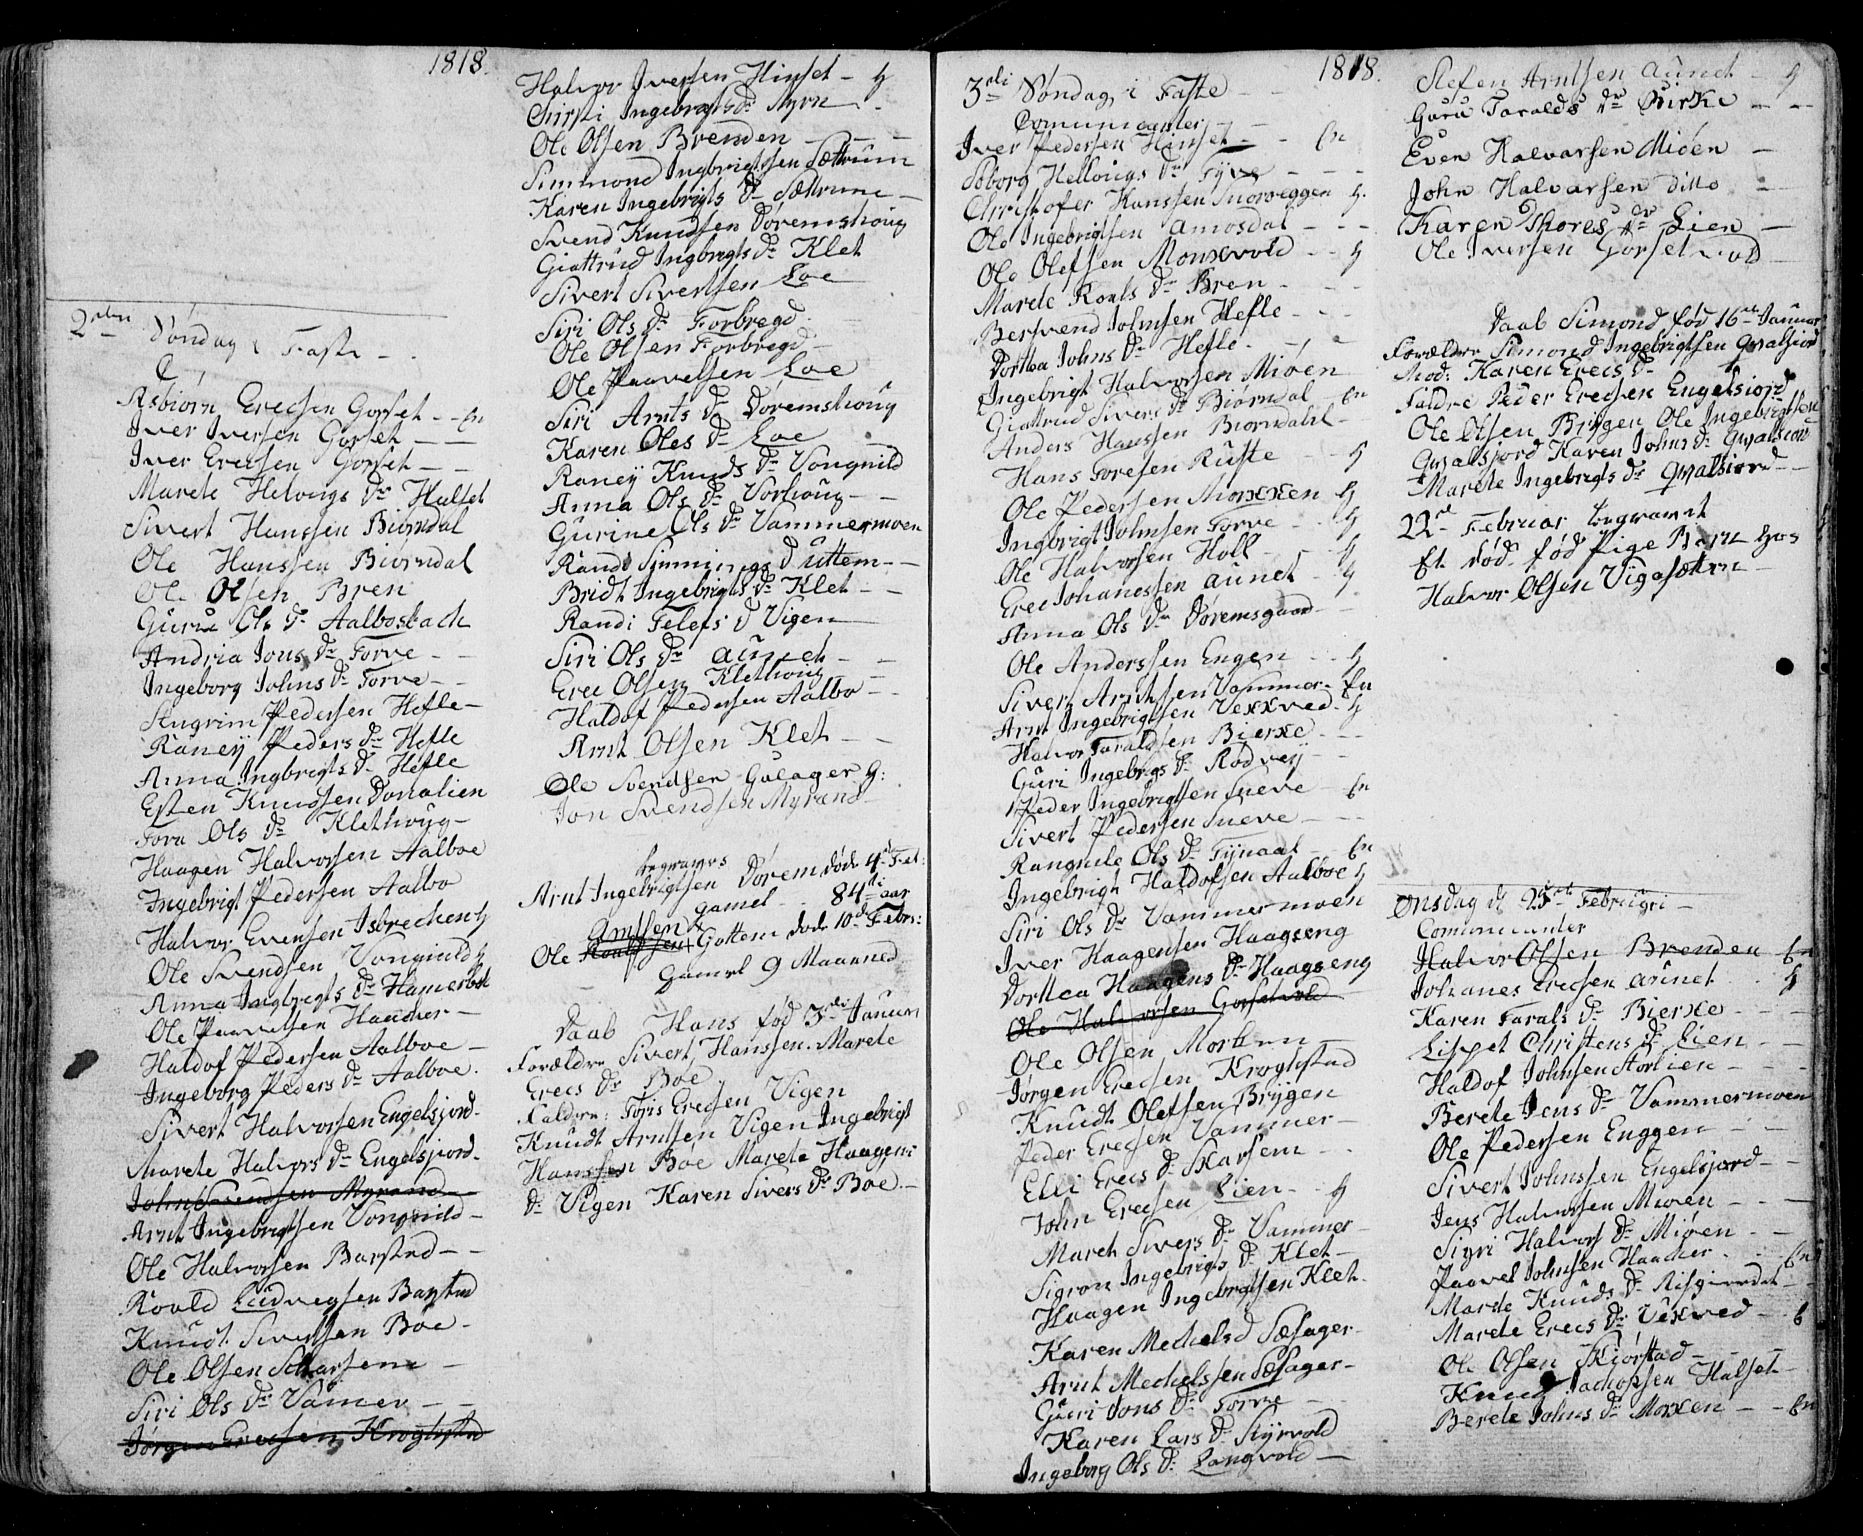 1818.
2den Søndag i Faste
Asbiørn Erecsen Gorset - - En
Iver Iversen Gorset
Iver Erecsen Gorset
Marete Helvigs Dr Halset
Sivert Hanssen Biørndal
Ole Hanssen Biørndal
Ole Olsen Bren
Guru Ols Dr Aalbosbach
Andria Jons Dr Forve
Ingeborg Johns Dr Forve
Angrim Pedersen Hefle
Raney Peders Dr Hefle
Anna Ingbrigts Dr Hefle
Esten Knudsen Donalien
Tora Ols Dr Klethoug
Haagen Halvorsen Aalboe
Ingebrigt Pedersen Aalbo
Halvor Evensen Isbrechen g
Ole Svendsen Vongnild g
Anna Ingbrigts Dr Hamerbek
Ole Paavelsen Haacher
Haldof Pedersen Aalboe
Ingeborg Peders Dr Aalboe
Sivert Halvorsen Engelsjord
Marete Halvors Dr Engelsjord
John Svendsen Myrand
Arnt Ingebrigtsen Vongnild
Ole Halvorsen Barstad
Roald Ludvigsen Barstad
Knudt Sivertsen Boe
Ole Olsen Scharsem
Siri Ols Dr Vamer
Jørgen Erecsen Krogstad
Halvor Iversen Hinset - g
Chirsti Ingebrigts Dr Myrn
Ole Olsen Brenden
Simmond Ingbrigtsen Sættrum
Karen Ingebrigts Dr Sættrum
Svend Knudsen Doremshoug
Giattrud Ingbrigts Dr Klet
Sivert Sivertsen Loe
Siri Ols Dr Forbregd
Ole Olsen Forbregd
Ole Paavelsen Loe
Siri Arnts Dr Doremshoug
Karen Oles Dr Loe
Raney Knuds Dr Vongnild
Anna Ols Dr Vorhoug
Gurine Ols Dr Vammermoen
Rand Simmings D Uttem
Bridt Ingebrigts Dr Klet
Randi Telefs D Vigen
Siri Ols Dr Aunet
Erec Olsen Klethoug
Haldof Pedersen Aalbo
Arnt Olsen Klet
Ole Svendsen Gulager g:
Jon Svendsen Myrand
begraves
Arnt Ingebrigtsen Dorem døde 4de Feb:
gamel 84 aar
Arntsen
Ole Roaldsen Gottem døde 10de Febr:
Gamel 9 Maaned
Daab Hans fød 3di Januari
Forældre Sivert Hanssen Marete
Erecs Dr Boe
Faldre: Toris Erecsen Vigen
Knudt Arntsen Vigen Ingebrigt
Hanssen Boe Marete Haagens
Dr Vigen Karen Sivers Dr Boe
1818.
3die Søndag i Faste
Comunicanter
Iver Pedersen Hinset - En
Soborg Hellougs Dr Tyve
Christofer Hanssen Snorveggen g
Ole Ingebrigtsen Amosdal
Ole Olefsen Monxvold g
Marete Roals Dr Bren
Bersvend Johnsen Hefle
Dortea Johns Dr Hefle
Ingebrigt Halvorsen Miøen
Giattrud Sivers Dr Biørndal En
Anders Hanssen Biorndahl
Hans Toresen Ruste g
Ole Pedersen Morxxen g
Ingbrigt Johnsen Forve g
Ole Halvorsen Holl g
Erec Johanessen Aunet g
Anna Ols Dr Doremsgaard
Ole Anderssen Engen g
Sivert Arntsen Vammer En
Arnt Ingebrigtsen Vexxved g
Halvor Taraldsen Bierxe
Guri Ingebrigs Dr Rodvey
Peder Ingebrigtsen Sneve En
Sivert Pedersen Sneve
Rangnile Ols Dr Fijnaal En
Ingebrigt Haldofsen Aalboe g
Siri Ols Dr Vammermoen
Iver Haagensen Haagseng
Dortea Haagens Dr Haagseng
Ole Halvorsen Gorsetvold
Ole Olsen Morken
Jørgen Erecsen Krogstad
Knudt Olefsen Brygen
Peder Erecsen Vammer
Elli Erecs Dr Skarsem
John Erecsen Lien g
Maret Sivers Dr Vammer
Sigron Ingebrigts Dr Klet
Haagen Ingebrigtsen Klet
Karen Mechels D Sæsager
Arnt Mechelssen Sæsager
Guri Jons Dr Forve
Karen Lars Dr Styrvold
Ingeborg Ols Dr Langvold
Stefen Arntsen Aunet g
Guru Taralds Dr Birke
Even Halvarsen Miøen
John Halvarsen Ditto
Karen Thores Dr Lien
Ole Iversen Gorsetvold
Daab Simond fød 16de Januar
Forældre Simond Ingebrigtsen Qvalsiord
Mod: Karen Erecs Dr
Faldre Peder Erecsen Engelsiord
Ole Olsen Brygen Ole Ingebrigtsen
Qvalsjord Karen Johns Dr Qvalsiord
Marete Ingebrigts Dr Qvalsiord
22de Februar begravet
Et død fød Pige Barn hos
Halvor Olsen Vigesætrn
Onsdag d 25de Februari
Comunicanter
Halvor Olsen Brenden En
Johanes Erecsen Aunet g
Karen Tarals Dr Bierxe
Lispet Christens Dr Lien
Haldof Johnsen Storlien
Berete Jens Dr Vammermoen
Ole Pedersen Enggen
Sivert Johnssen Engelsjord
Jens Halvorsen Mioen
Sigri Halvors Dr Mioen
Paavel Johnsen Haacher En
Marete Knuds Dr Risgiordet
Marete Erecs Dr Vexved
Ole Olsen Skiørstad
Knud Jachopsen Halset
Berete Johns Dr Morxen En